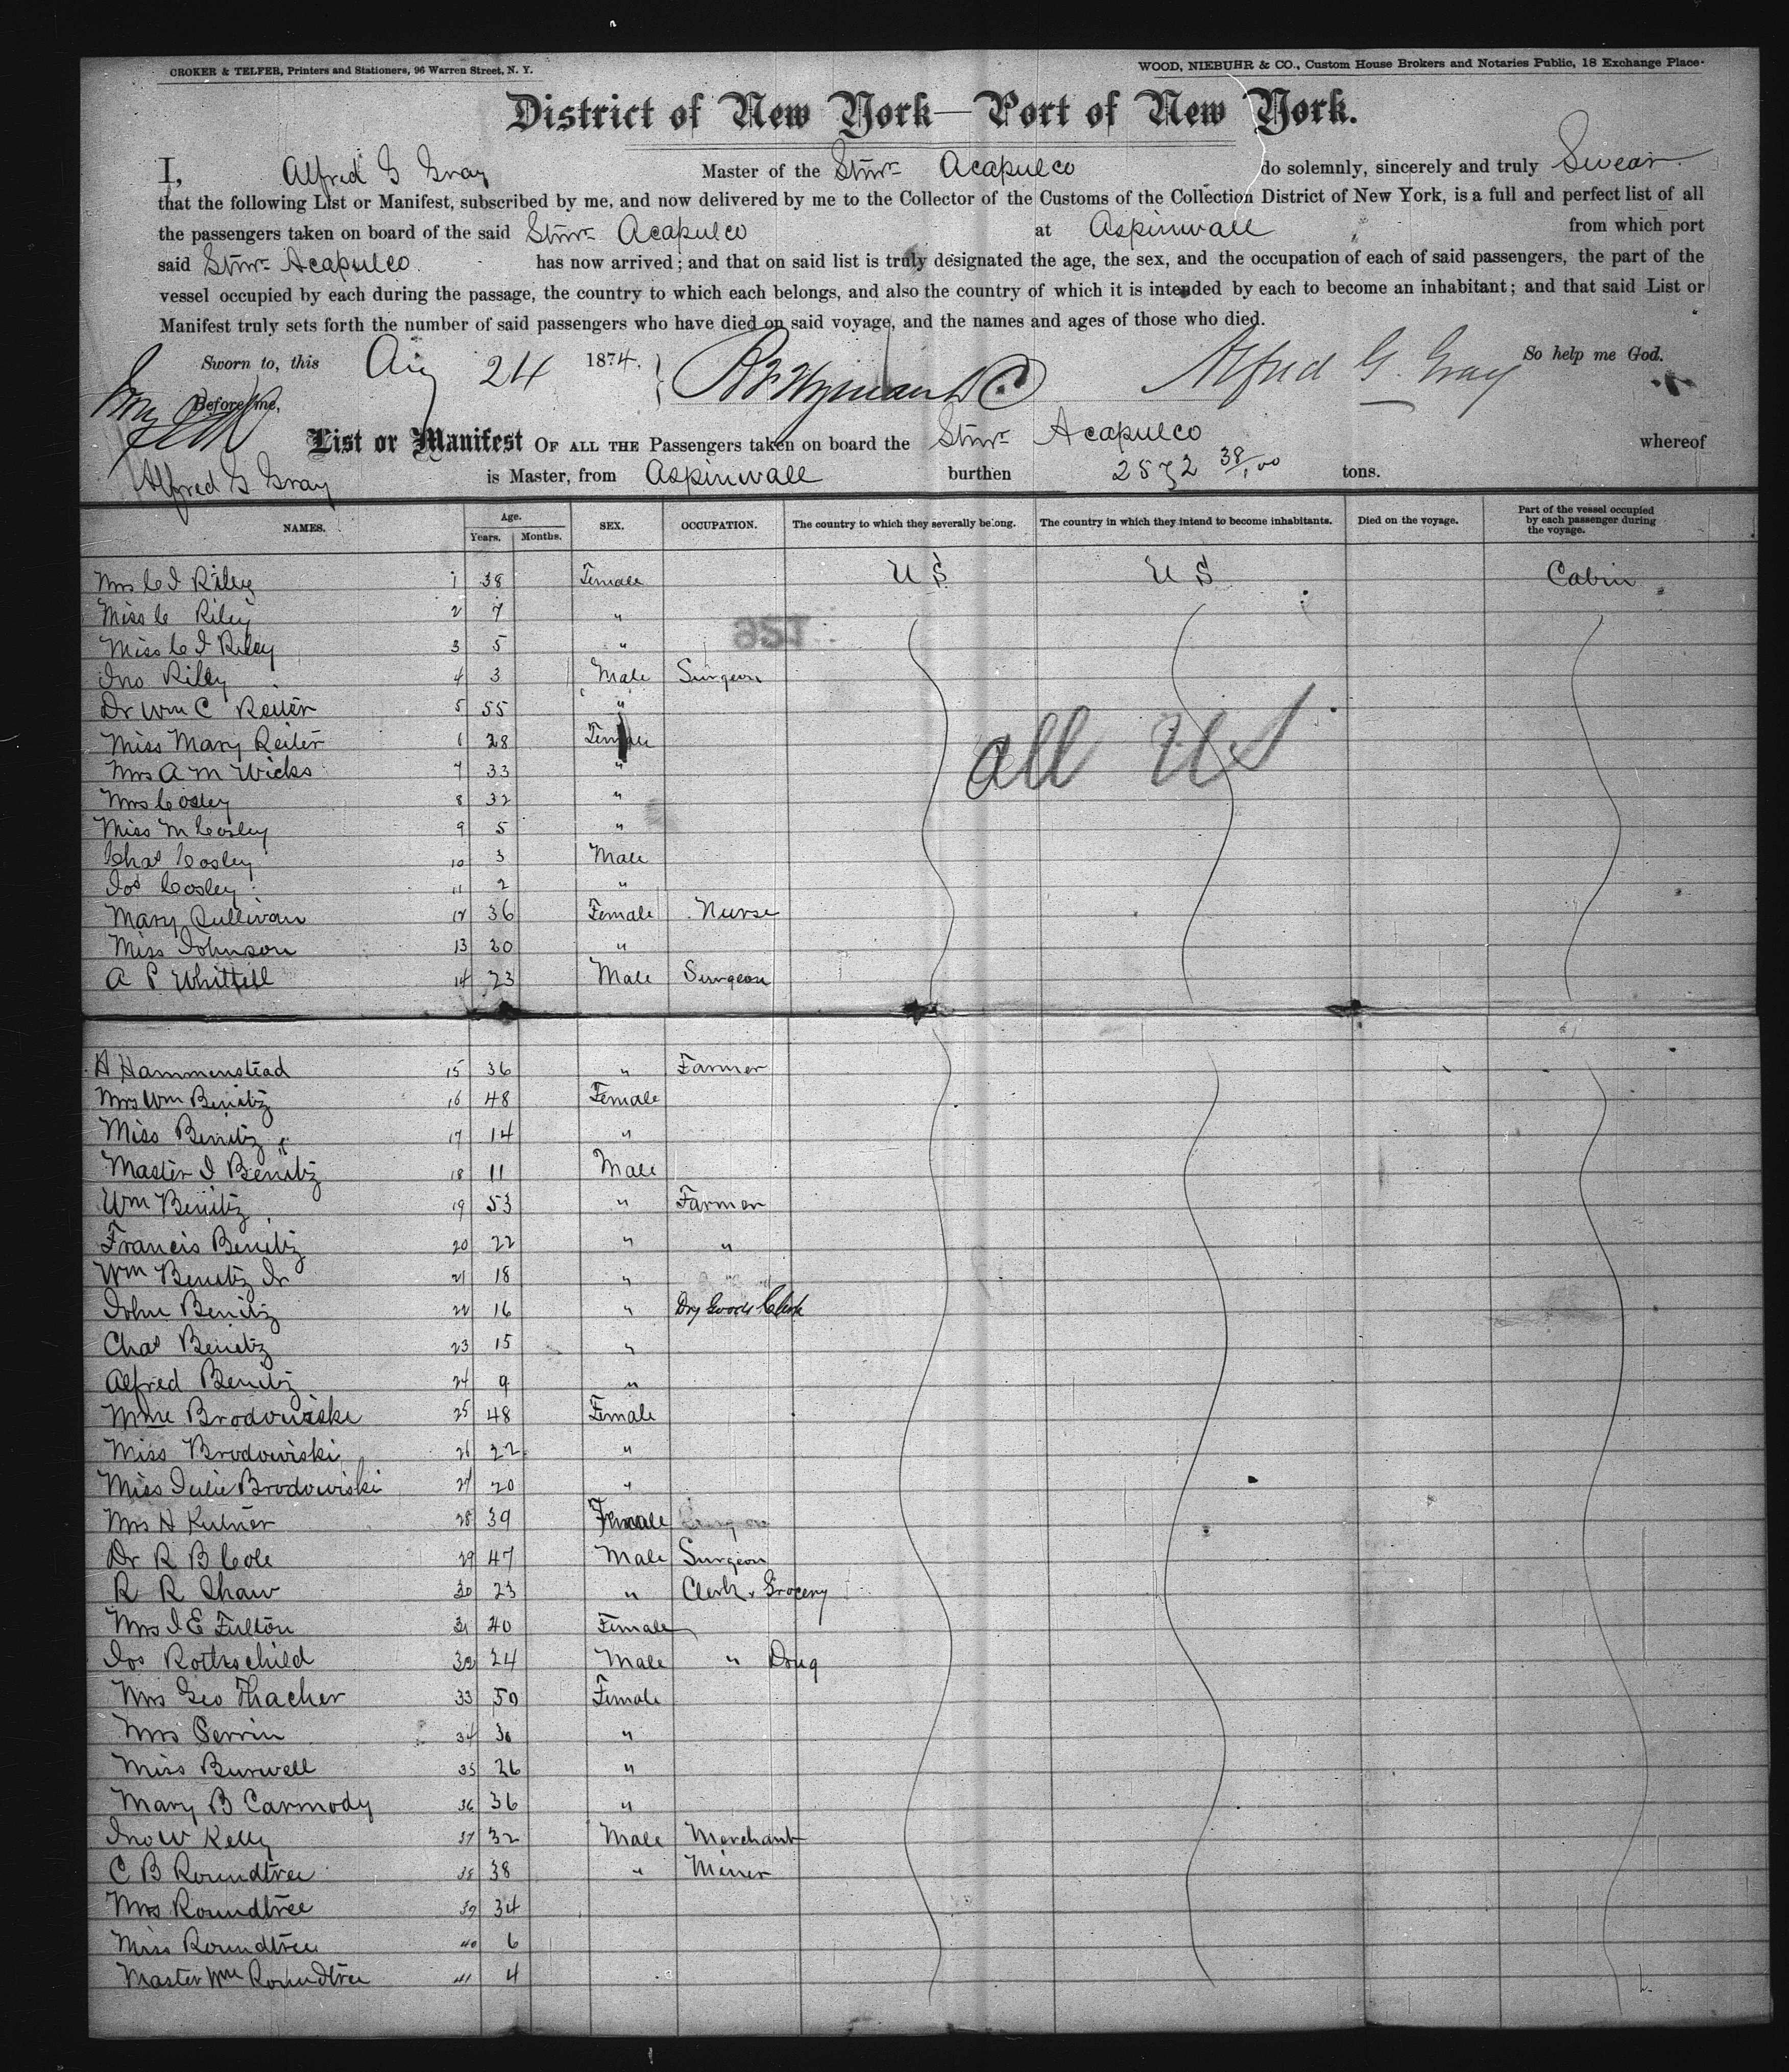 CROKER & TELFER, Printers and Stationers, 96 Warren Street, N. Y.
WOOD, NIEBUHR & CO., Custom House Brokers and Notaries Public, 18 Exchange Place.
District of New York—Port of New York.
I, Alfred G Gray Master of the Stmr Acapulco do solemnly, sincerely and truly Swear
that the following List or Manifest, subscribed by me, and now delivered by me to the Collector of the Customs of the Collection District of New York, is a full and perfect list of all
the passengers taken on board of the said Stmr Acapulco at Aspinwall from which port
said Stmr Acapulco has now arrived; and that on said list is truly designated the age, the sex, and the occupation of each of said passengers, the part of the
vessel occupied by each during the passage, the country to which each belongs, and also the country of which it is intended by each to become an inhabitant; and that said List or
Manifest truly sets forth the number of said passengers who have died on said voyage, and the names and ages of those who died.
Sworn to, this Aug 24 1874. Alfred G. Gray So help me God.
Before me,
List or Manifest OF ALL THE Passengers taken on board the Stmr Acapulco whereof
Alfred G Gray is Master, from Aspinwall burthen 2572 38/100 tons.
NAMES. Age. Years. Months. SEX. OCCUPATION. The country to which they severally belong. The country in which they intend to become inhabitants. Died on the voyage. Part of the vessel occupied by each passenger during the voyage.
Mrs C J Riley 1 38 Female U S U S Cabin
Miss C Riley 2 7 "
Miss C J Riley 3 5 "
Jno Riley 4 3 Male Surgeon
Dr Wm C Reiter 5 55 "
Miss Mary Reiter 6 28 Female
all US
Mrs A M Wicks 7 33 "
Mrs Cosley 8 32 "
Miss M Cosley 9 5 "
Chas Cosley 10 3 Male
Jos Cosley 11 2 "
Mary Sullivan 12 36 Female Nurse
Miss Johnson 13 20 "
A P Whittell 14 23 Male Surgeon
A Hammenstead 15 36 " Farmer
Mrs Wm Benitz 16 48 Female
Miss Benitz 17 14 "
Master J Benitz 18 11 Male
Wm Benitz 19 53 " Farmer
Francis Benitz 20 22 " "
Wm Benitz Jr 21 18 " "
John Benitz 22 16 " Dry Goods Clerk
Chas Benitz 23 15 "
Alfred Benitz 24 9 "
Mme Brodowiski 25 48 Female
Miss Brodowiski 26 22 "
Miss Julie Brodowiski 27 20 "
Mrs A Kutner 28 39 Female
Dr R B Cole 29 47 Male Surgeon
R R Shaw 30 23 " Clerk Grocery
Mrs J E Fulton 31 40 Female
Jos Rothschild 32 24 Male " Drug
Mrs Geo Thacher 33 50 Female
Mrs Perrin 34 30 "
Miss Burwell 35 26 "
Mary B Carmody 36 36 "
Jno W Kelly 37 32 Male Merchant
C B Roundtree 38 38 " Miner
Mrs Roundtree 39 34
Miss Roundtree 40 6
Master Wm Roundtree 41 4